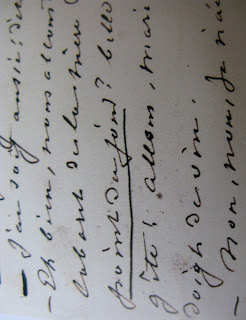 – J'ai soif aussi! de
– Eh bien, nous allons
cabaret de la mère
point du jour? belle
gîte! allons, mari
doigt de vin.
– Non, non, je n'ai